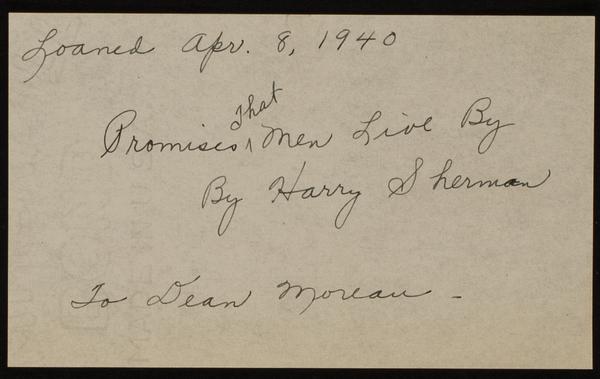 Loaned Apr. 8, 1940
Promises That Men Live By
By Harry Sherman
To Dean Moreau -